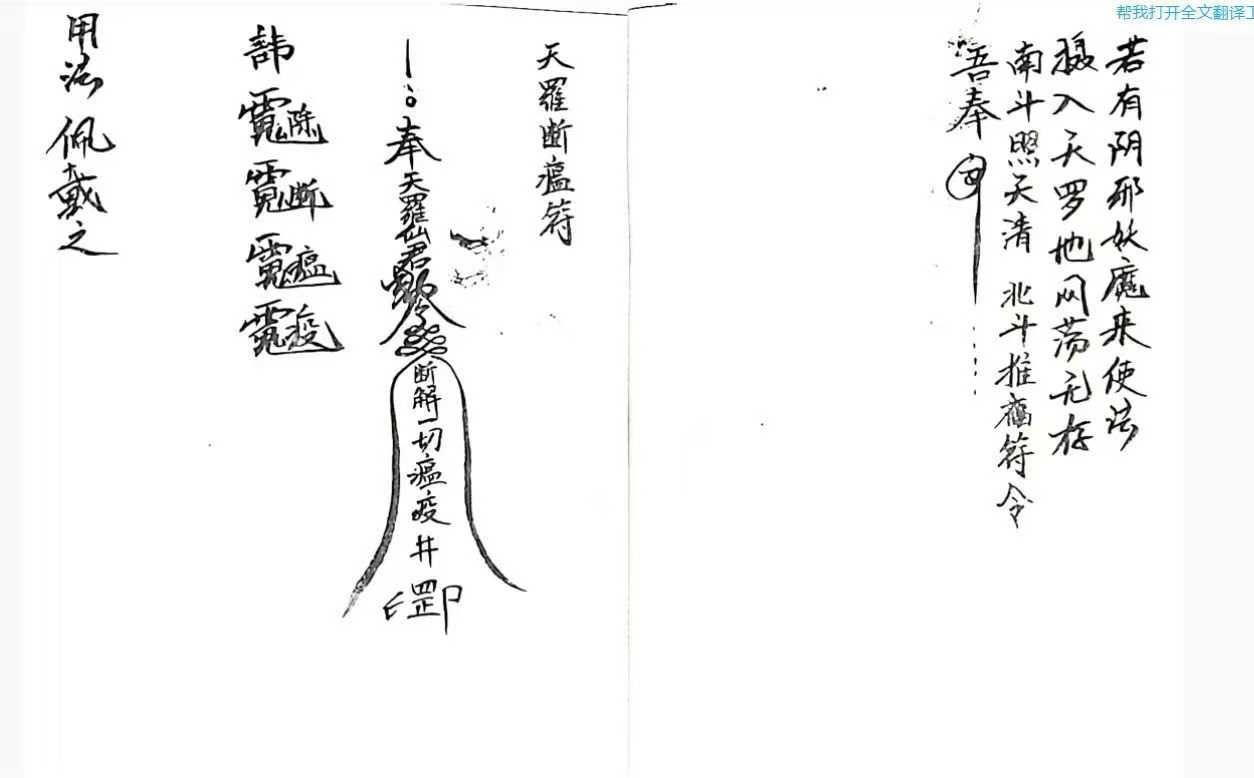 帮我打开全文翻译工
若有阴邪妖魔来使法
摄入天罗地网荡无存
南斗照天清 北斗推癌符令
吾奉
天羅断瘟符
奉天羅仙君
断解一切瘟疫井
罡印
諱
除
断
瘟
疫
用法 佩戴之